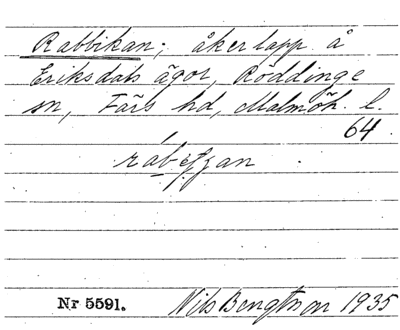 Rabbikan; åkerlapp å
Eriksdals ägor, Röddinge
sn, Färs hd, Malmöh. l.
64.
Nr 5591.
Nils Bengtsson 1935